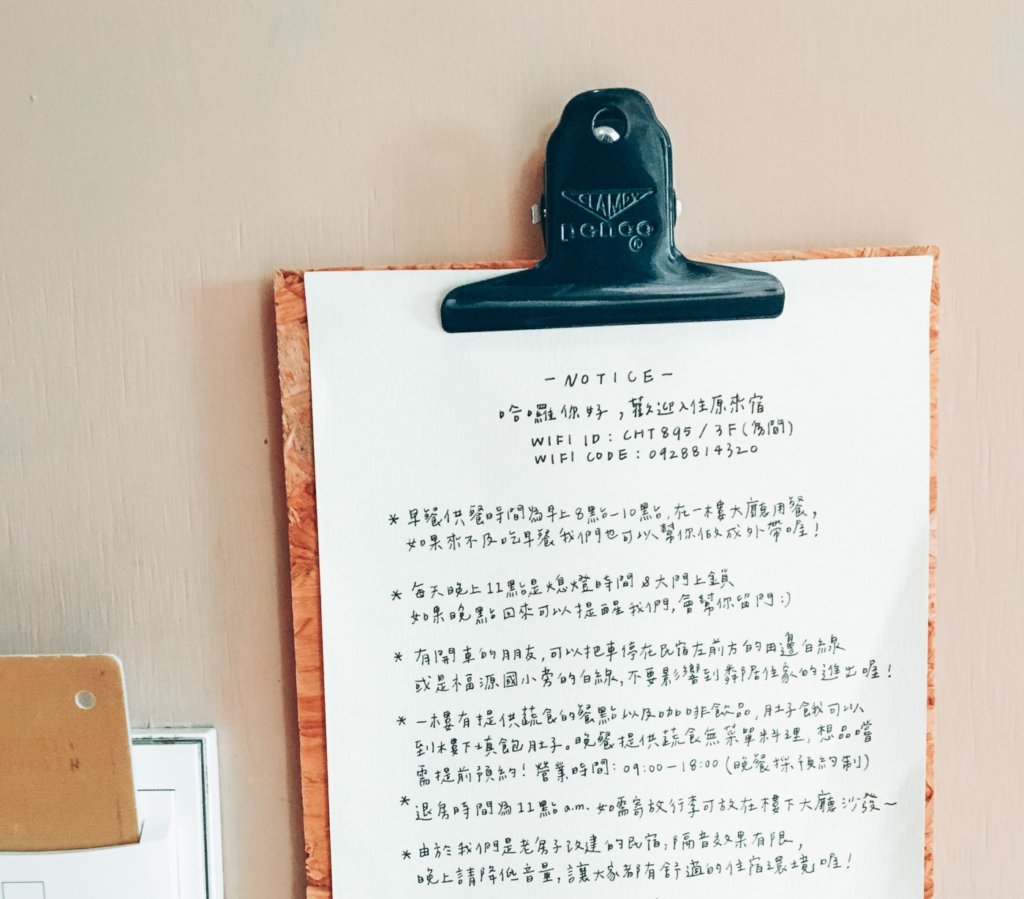 CLAMPY
penco
®
- NOTICE -
哈囉你好，歡迎入住原來宿
WIFI ID : CHT895 / 3F (房間)
WIFI CODE : 0928814320
* 早餐供餐時間為早上8點-10點，在一樓大廳用餐，
如果來不及吃早餐我們也可以幫你做成外帶喔！
* 每天晚上11點是熄燈時間 & 大門上鎖
如果晚點回來可以提醒我們，會幫你留門 :)
* 有開車的朋友，可以把車停在民宿左前方的田邊白線
或是福源國小旁的白線，不要影響到鄰居住家的進出喔！
* 一樓有提供蔬食的餐點以及咖啡飲品，肚子餓可以
到樓下填飽肚子。晚餐提供蔬食無菜單料理，想品嚐
需提前預約！營業時間：09:00-18:00 (晚餐採預約制)
* 退房時間為11點 a.m. 如需寄放行李可放在樓下大廳沙發~
* 由於我們是老房子改建的民宿，隔音效果有限，
晚上請降低音量，讓大家都有舒適的住宿環境喔！